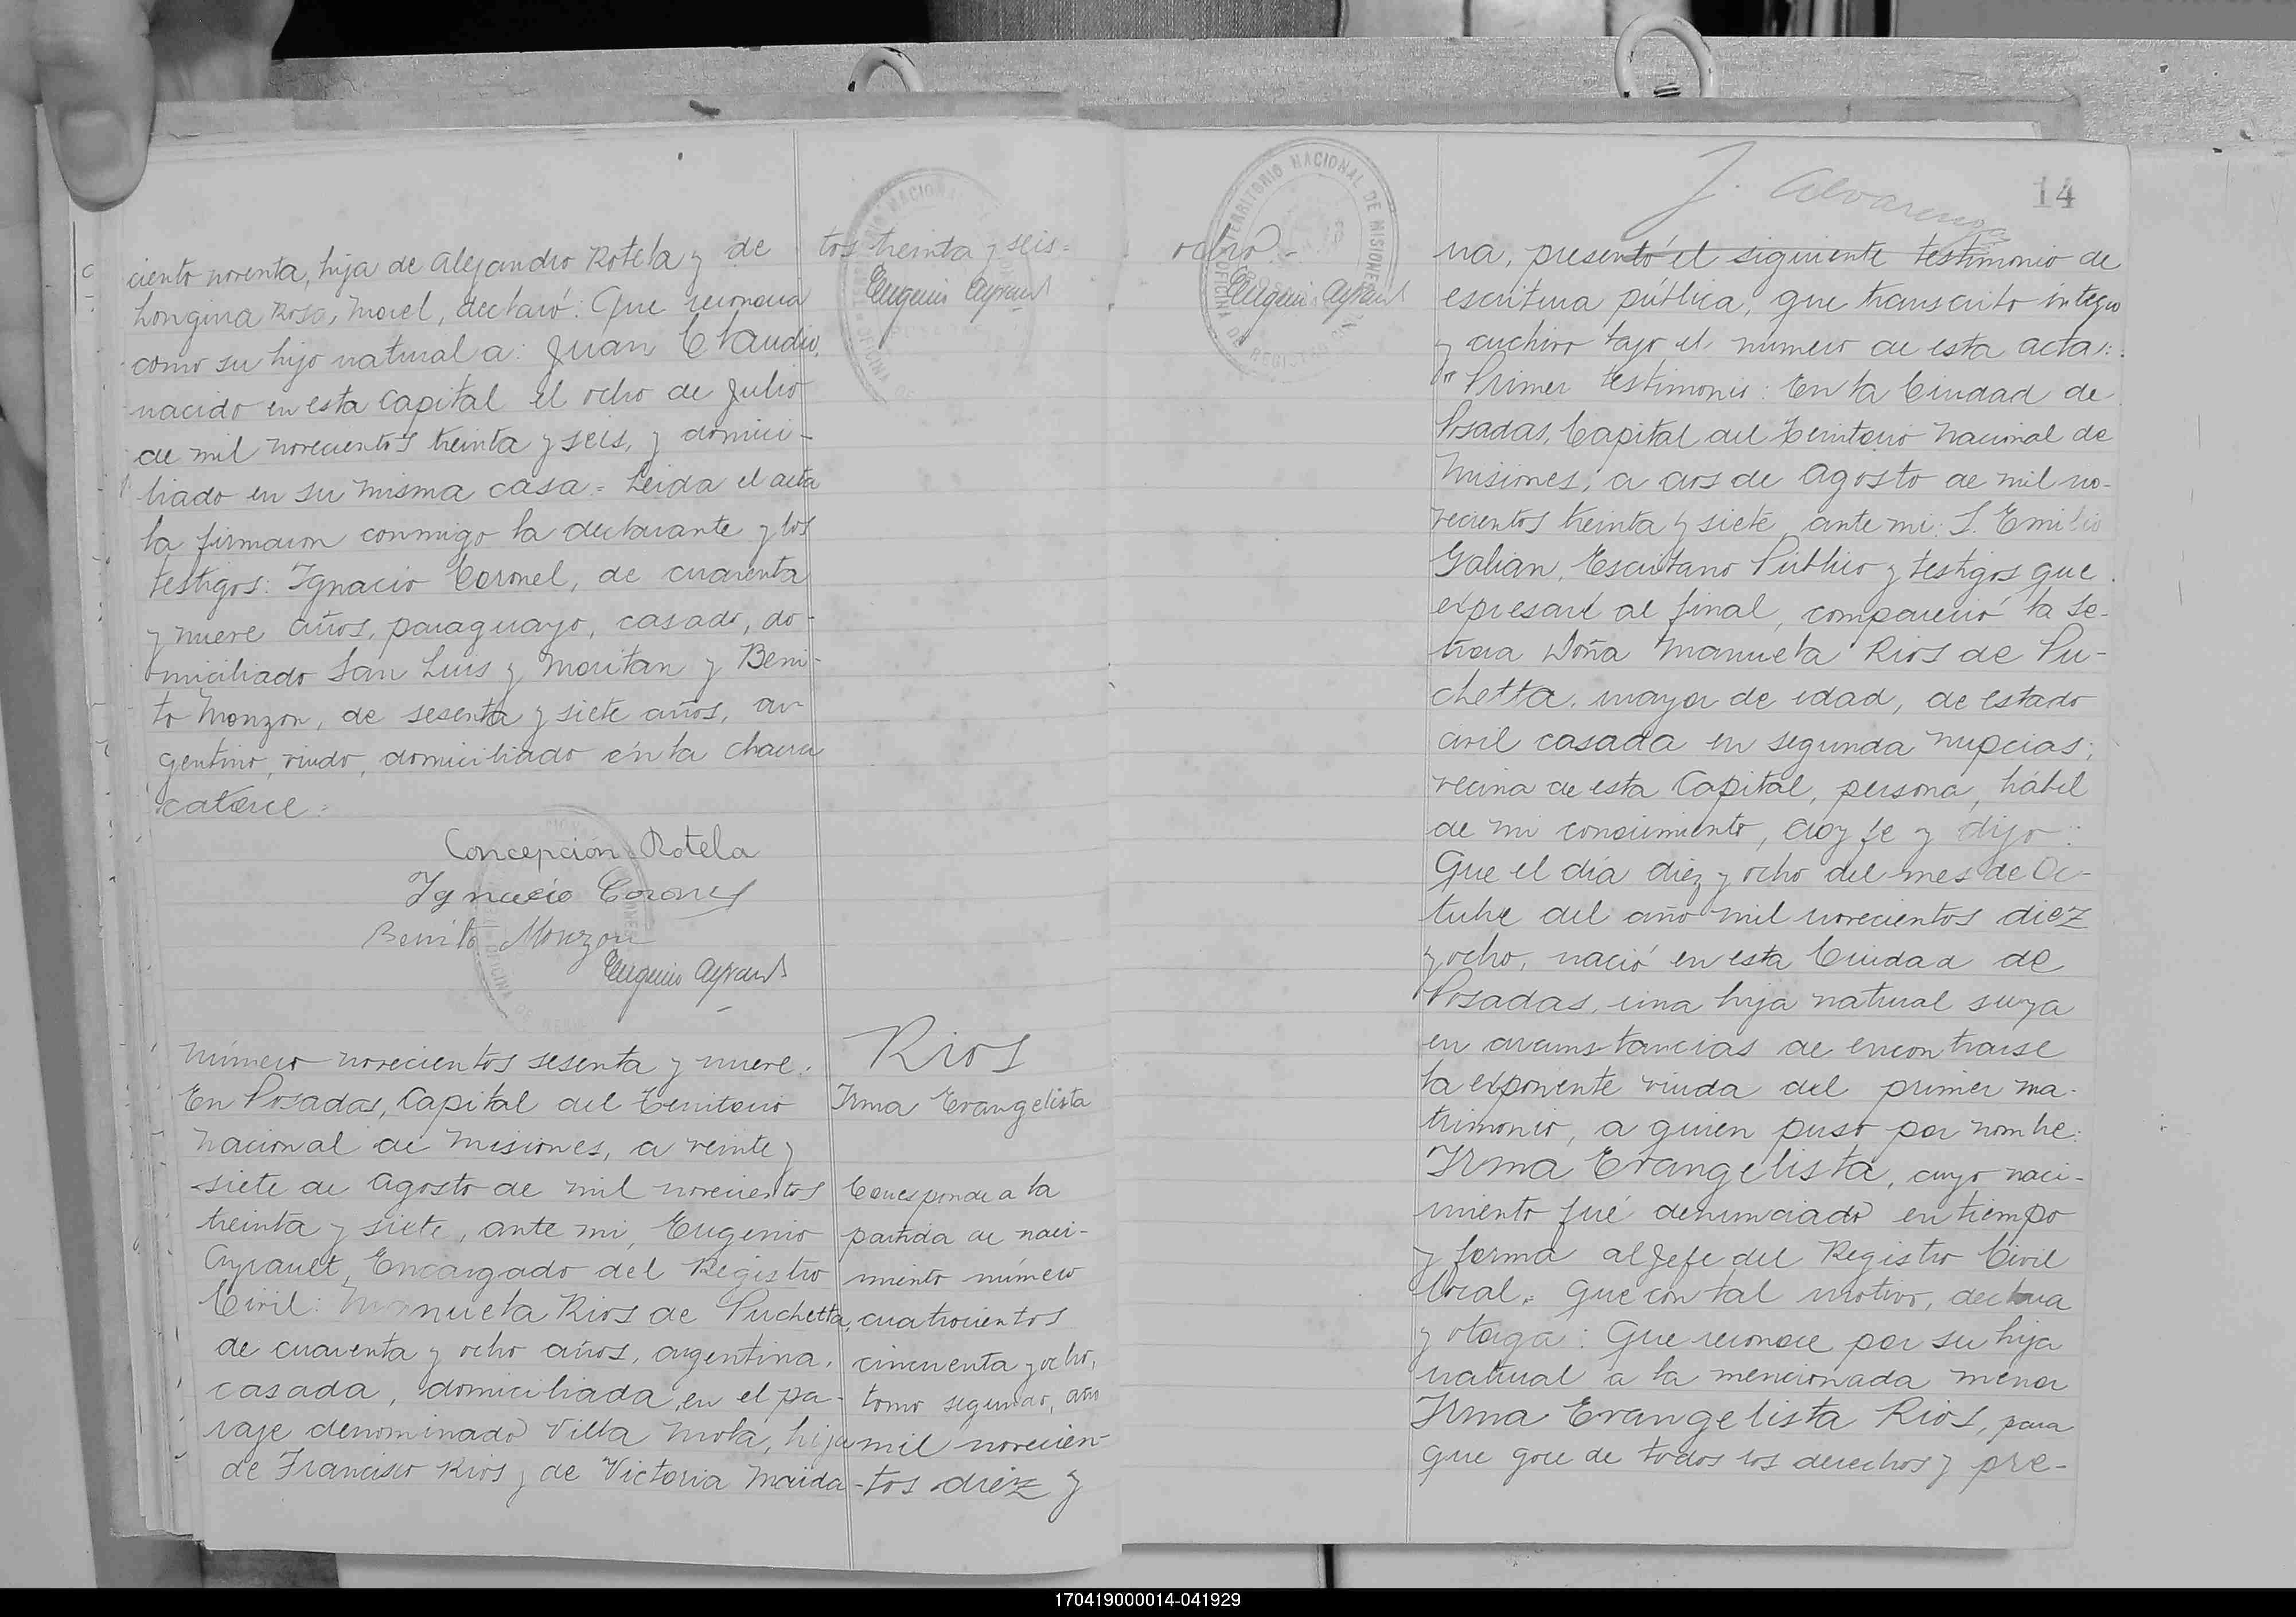 ciento noventa, hija de Alejandro Rotela y de
Longina Rosa, Morel, declaró: Que reconocia
como su hijo natural a: Juan Claudio,
nacido en esta Capital el ocho de Julio
de mil novecientos treinta y seis, y domici-
liado en su misma casa = Leida el acta
la firmaron conmigo la declarante y los
testigos: Ignacio Coronel, de cuarenta
y nueve años, paraguayo, casado, do-
miciliado San Luis y Moritan y Beni-
to Monzon, de sesenta y siete años, ar-
gentino, viudo, domiciliado en la chacra
catorce =
Concepción Rotela
Ignacio Coronel
Benito Monzon
Eugenio Ayrault
tos treinta y seis =
Eugenio Ayrault
Número novecientos sesenta y nueve.
En Posadas, Capital del Territorio
Nacional de Misiones, a veinte y
siete de Agosto de mil novecientos
treinta y siete, ante mi, Eugenio
Ayrault, Encargado del Registro
Civil: Manuela Rios de Puchetta,
de cuarenta y ocho años, argentina,
casada, domiciliada, en el pa-
raje denominado Villa Mola, hija
de Francisco Rios y de Victoria Maida-
Rios
Irma Evangelista
Corresponde a la
partida de naci-
miento número
cuatrocientos
cincuenta y ocho,
tomo segundo, año
mil novecien-
tos diez y
ocho.-
Eugenio Ayrault
TERRITORIO NACIONAL DE MISIONES
OFICINA DE REGISTRO
J. Alvarenga
14
na, presentó el siguiente testimonio de
escritura pública, que transcrito integro
y archivo bajo el número de esta acta:
"Primer testimonio: En la Ciudad de
Posadas, Capital del Territorio Nacional de
Misiones, a dos de Agosto de mil no-
vecientos treinta y siete, ante mi: S. Emilio
Galian, Escribano Público y testigos que
expresaré al final, compareció la Se-
ñora Doña Manuela Rios de Pu-
chetta, mayor de edad, de estado
civil casada en segunda nupcias,
vecina de esta Capital, persona, hábil
de mi conocimiento, doy fe y dijo:
Que el día diez y ocho del mes de Oc-
tubre del año mil novecientos diez
y ocho, nació en esta Ciudad de
Posadas, una hija natural suya
en circunstancias de encontrarse
la exponente viuda del primer ma-
trimonio, a quien puso por nombre:
Irma Evangelista, cuyo naci-
miento fué denunciado en tiempo
y forma al Jefe del Registro Civil
local. Que con tal motivo, declara
y otorga: Que reconoce por su hija
natural a la mencionada menor
Irma Evangelista Rios, para
que goce de todos los derechos y pre-
170419000014-041929